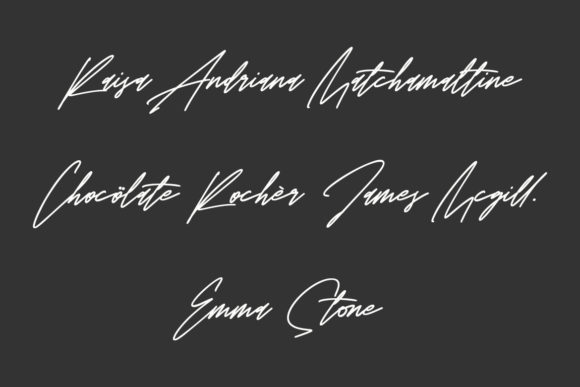 Raisa Andriana Matchamaltine
Chocölate Rochèr James Mcgill.
Emma Stone